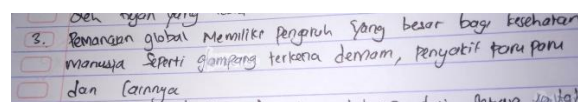 oleh hujan yang
3. Pemanasan global Memiliki Pengaruh yang besar bagi kesehatan
manusia seperti gampang terkena demam, penyakit paru paru
dan lainnya